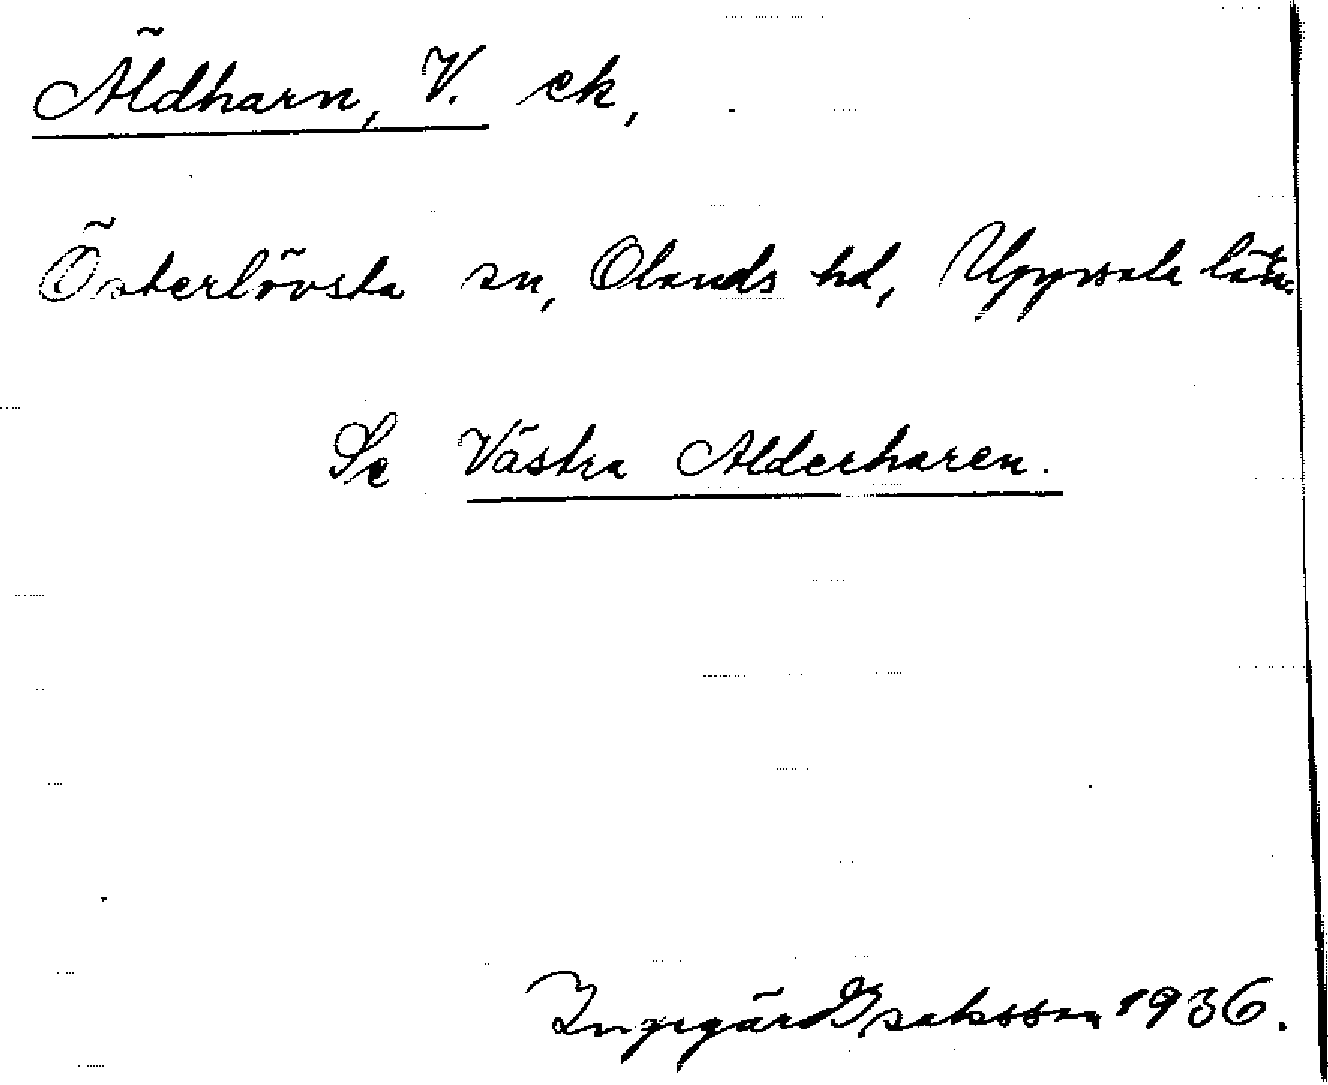 Äldharn, V. ek,
Österlövsta sn, Olands hd, Uppsala län.
Se Västra Alderharen.
Ingegärd Isaksson 1936.